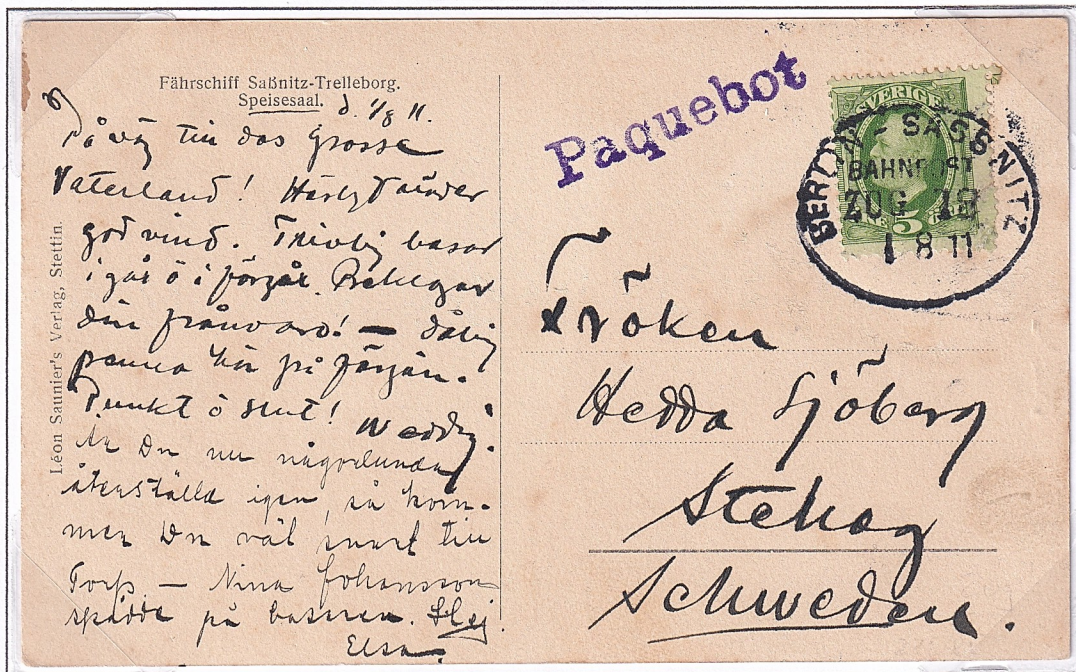 Fährschiff Saßnitz-Trelleborg.
Speisesaal.
d. 1/8 11.
På väg till das Grosse
Vaterland! Härligt väder
god vind. Trevlig basar
igår ö i förgår. Beklagar
din frånvaro! — dålig
penna här på färjan.
Punkt ö slut!
Är Du nu någorlunda
återställd igen, så kom-
mer Du väl snart till
Torp — Nina Johansson
spådde på basaren. Hej
Elsa.
Léon Saunier's Verlag, Stettin.
Paquebot
SVERIGE
5
BERLIN SASSNITZ
BAHNPOST
ZUG
1 8 11
Fröken
Hedda Sjöberg
Stehag
Schweden.